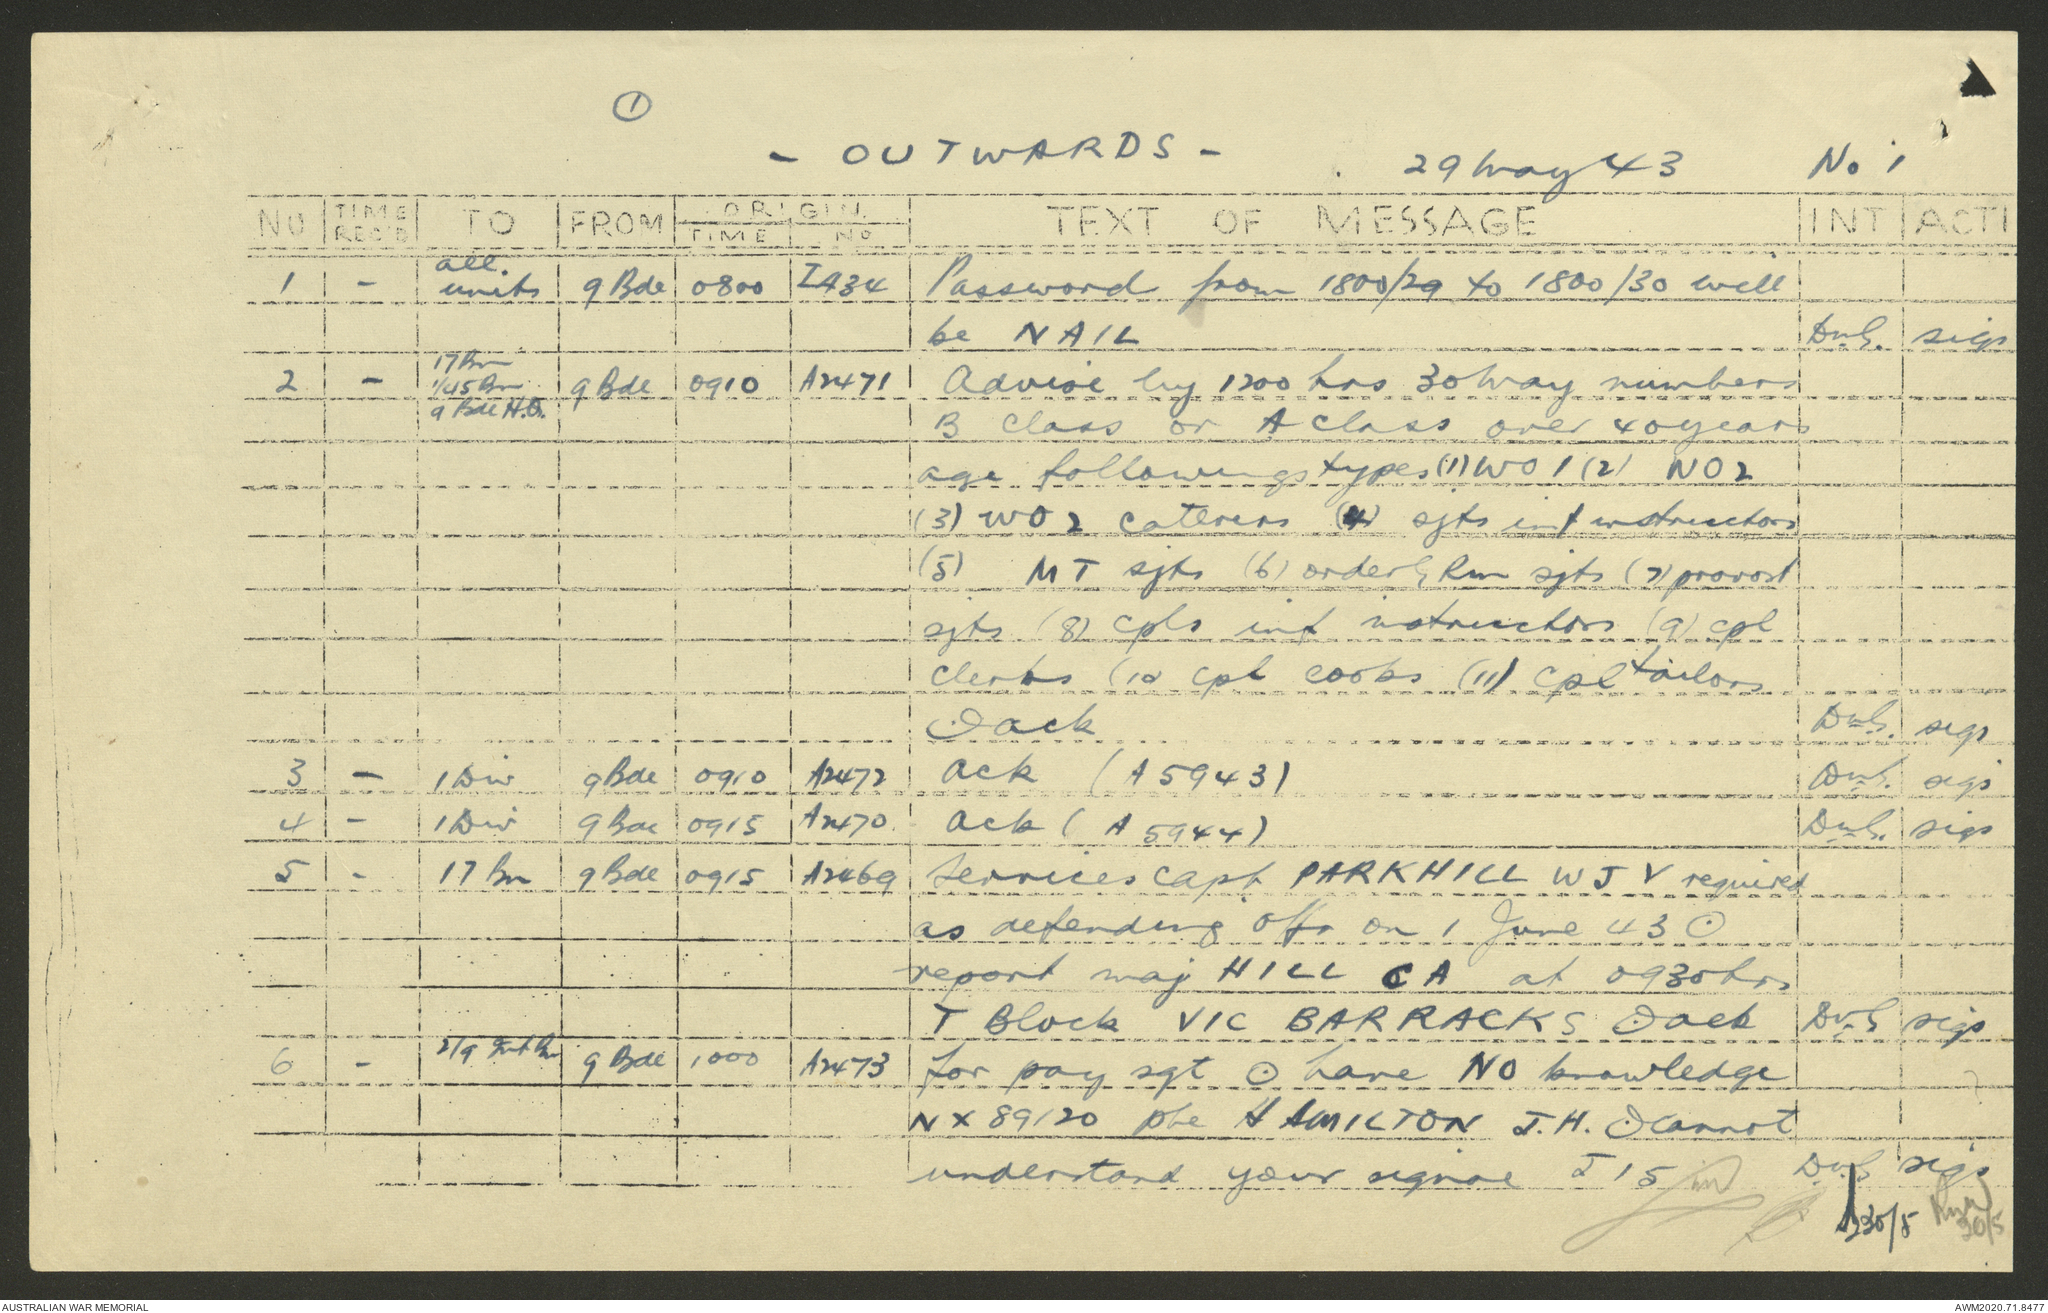 1
- OUTWARDS -
29 May 43 No 1
NO TIME REC'D TO FROM ORIGIN. TIME No TEXT OF MESSAGE INT ACTI
1 - all. units 9 Bde 0800 I434 Password from 1800/29 to 1800/30 will
be NAIL DWG. sigs
2 - 17 Bn 1/45 Bn 9 Bde H.Q. 9 Bde 0910 A2471 Advise by 1200 hrs 30 May numbers
B class or A class over 40 years
age following types (1) WO 1 (2) WO 2
(3) WO 2 caterers (4) sjts inf instructors
(5) MT sjts (6) orderly Rm sjts (7) provost
sjts (8) cpls inf instructors (9) cpl
clerks (10 cpl cooks (11) cpl tailors
⊙ ack sigs
3 - 1 Div 9 Bde 0910 A2472 ack (A 5943) sigs
4 - 1 Div 9 Bde 0915 A2470. ack (A 5944) sigs
5 - 17 Bn 9 Bde 0915 A2469 Services Capt PARKHILL W J V required
as defending offr on 1 June 43 ⊙
report maj HILL C A at 0930 hrs
T Block VIC BARRACKS ⊙ ack sigs
6 - 2/9 Fit Bn 9 Bde 1000 A2473 for pay sgt ⊙ have NO knowledge
NX 89120 pte HAMILTON J.H. ⊙ cannot
understand your signal I 15 sigs
30/5 30/5
AUSTRALIAN WAR MEMORIAL AWM2020.71.8477